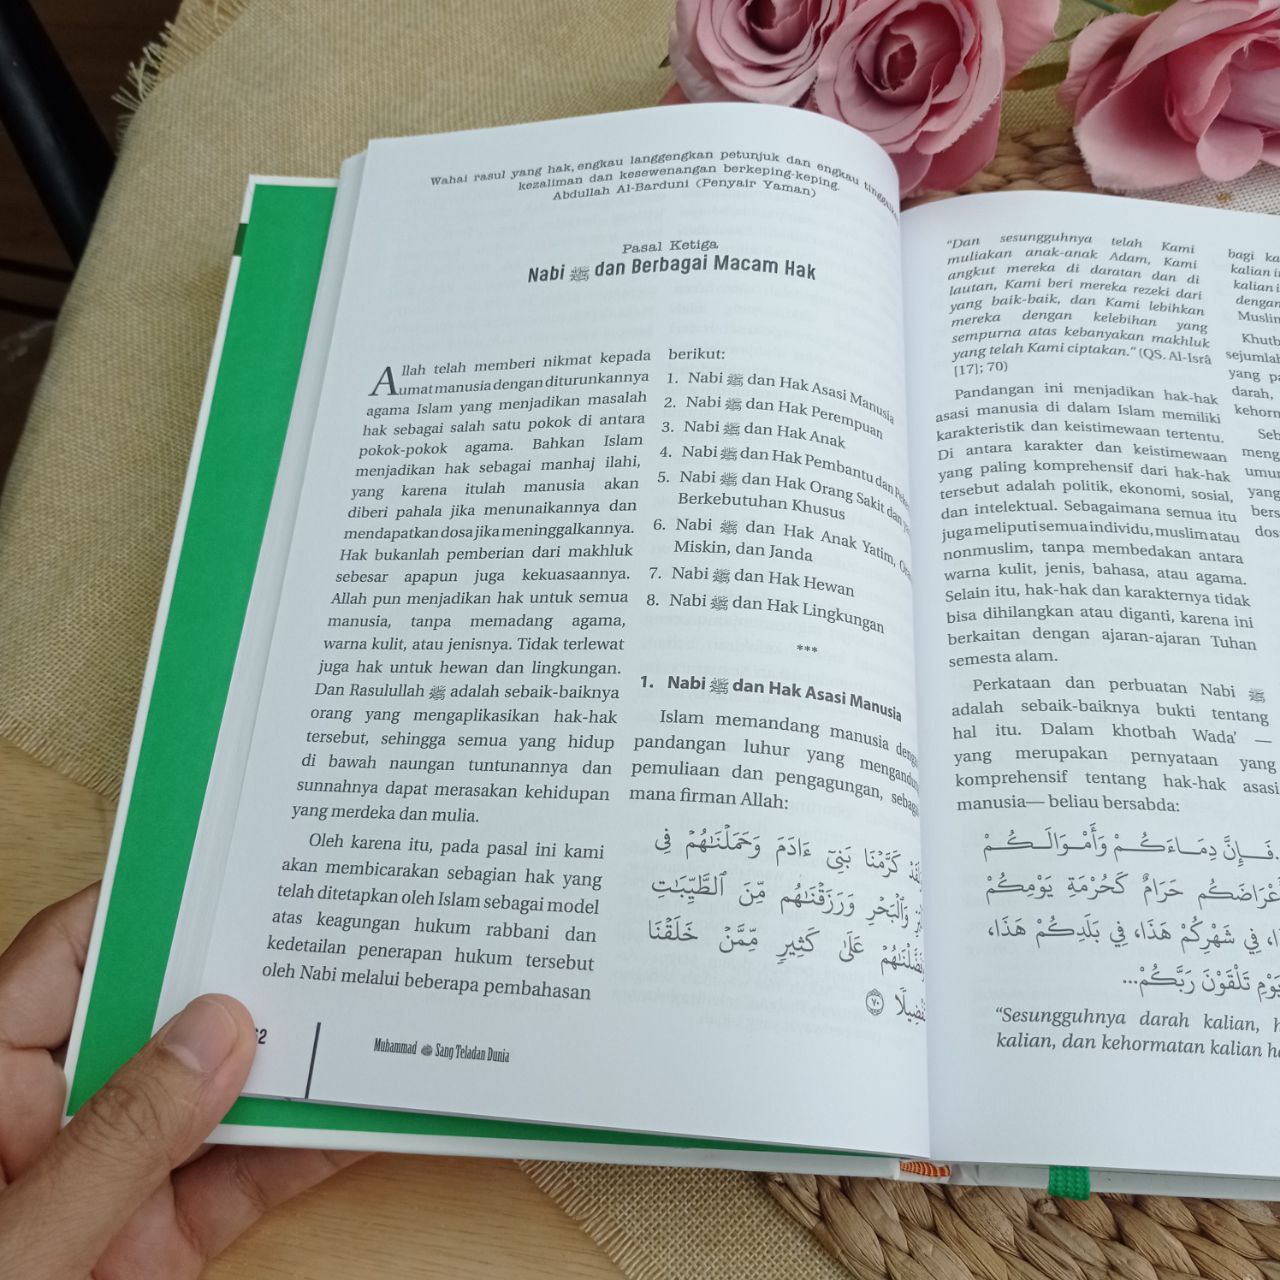 Wahai rasul yang hak, engkau langgengkan petunjuk dan engkau tinggalkan
kezaliman dan kesewenangan berkeping-keping.
Abdullah Al-Barduni (Penyair Yaman)
Pasal Ketiga
Nabi ﷺ dan Berbagai Macam Hak
Allah telah memberi nikmat kepada
umat manusia dengan diturunkannya
agama Islam yang menjadikan masalah
hak sebagai salah satu pokok di antara
pokok-pokok agama. Bahkan Islam
menjadikan hak sebagai manhaj ilahi,
yang karena itulah manusia akan
diberi pahala jika menunaikannya dan
mendapatkan dosa jika meninggalkannya.
Hak bukanlah pemberian dari makhluk
sebesar apapun juga kekuasaannya.
Allah pun menjadikan hak untuk semua
manusia, tanpa memadang agama,
warna kulit, atau jenisnya. Tidak terlewat
juga hak untuk hewan dan lingkungan.
Dan Rasulullah ﷺ adalah sebaik-baiknya
orang yang mengaplikasikan hak-hak
tersebut, sehingga semua yang hidup
di bawah naungan tuntunannya dan
sunnahnya dapat merasakan kehidupan
yang merdeka dan mulia.
Oleh karena itu, pada pasal ini kami
akan membicarakan sebagian hak yang
telah ditetapkan oleh Islam sebagai model
atas keagungan hukum rabbani dan
kedetailan penerapan hukum tersebut
oleh Nabi melalui beberapa pembahasan
berikut:
1. Nabi ﷺ dan Hak Asasi Manusia
2. Nabi ﷺ dan Hak Perempuan
3. Nabi ﷺ dan Hak Anak
4. Nabi ﷺ dan Hak Pembantu dan
5. Nabi ﷺ dan Hak Orang Sakit dan
Berkebutuhan Khusus
6. Nabi ﷺ dan Hak Anak Yatim,
Miskin, dan Janda
7. Nabi ﷺ dan Hak Hewan
8. Nabi ﷺ dan Hak Lingkungan
***
1. Nabi ﷺ dan Hak Asasi Manusia
Islam memandang manusia
pandangan luhur yang
pemuliaan dan pengagungan,
mana firman Allah:
كَرَّمْنَا بَنِىٓ ءَادَمَ وَحَمَلْنَٰهُمْ فِى
وَٱلْبَحْرِ وَرَزَقْنَٰهُم مِّنَ ٱلطَّيِّبَٰتِ
عَلَىٰ كَثِيرٍ مِّمَّنْ خَلَقْنَا
٧٠
62
Muhammad ﷺ Sang Teladan Dunia
"Dan sesungguhnya telah Kami
muliakan anak-anak Adam, Kami
angkut mereka di daratan dan di
lautan, Kami beri mereka rezeki dari
yang baik-baik, dan Kami lebihkan
mereka dengan kelebihan yang
sempurna atas kebanyakan makhluk
yang telah Kami ciptakan." (QS. Al-Isrâ
[17]; 70)
Pandangan ini menjadikan hak-hak
asasi manusia di dalam Islam memiliki
karakteristik dan keistimewaan tertentu.
Di antara karakter dan keistimewaan
yang paling komprehensif dari hak-hak
tersebut adalah politik, ekonomi, sosial,
dan intelektual. Sebagaimana semua itu
juga meliputi semua individu, muslim atau
nonmuslim, tanpa membedakan antara
warna kulit, jenis, bahasa, atau agama.
Selain itu, hak-hak dan karakternya tidak
bisa dihilangkan atau diganti, karena ini
berkaitan dengan ajaran-ajaran Tuhan
semesta alam.
Perkataan dan perbuatan Nabi ﷺ
adalah sebaik-baiknya bukti tentang
hal itu. Dalam khotbah Wada' —
yang merupakan pernyataan yang
komprehensif tentang hak-hak asasi
manusia— beliau bersabda:
فَإِنَّ دِمَاءَكُمْ وَأَمْوَالَكُمْ
حَرَامٌ كَحُرْمَةِ يَوْمِكُمْ
فِي شَهْرِكُمْ هَذَا، فِي بَلَدِكُمْ هَذَا،
تَلْقَوْنَ رَبَّكُمْ...
"Sesungguhnya darah kalian,
kalian, dan kehormatan kalian
bagi
kalian
kalian
dengan
Muslim
sejumlah
yang
darah,
yang